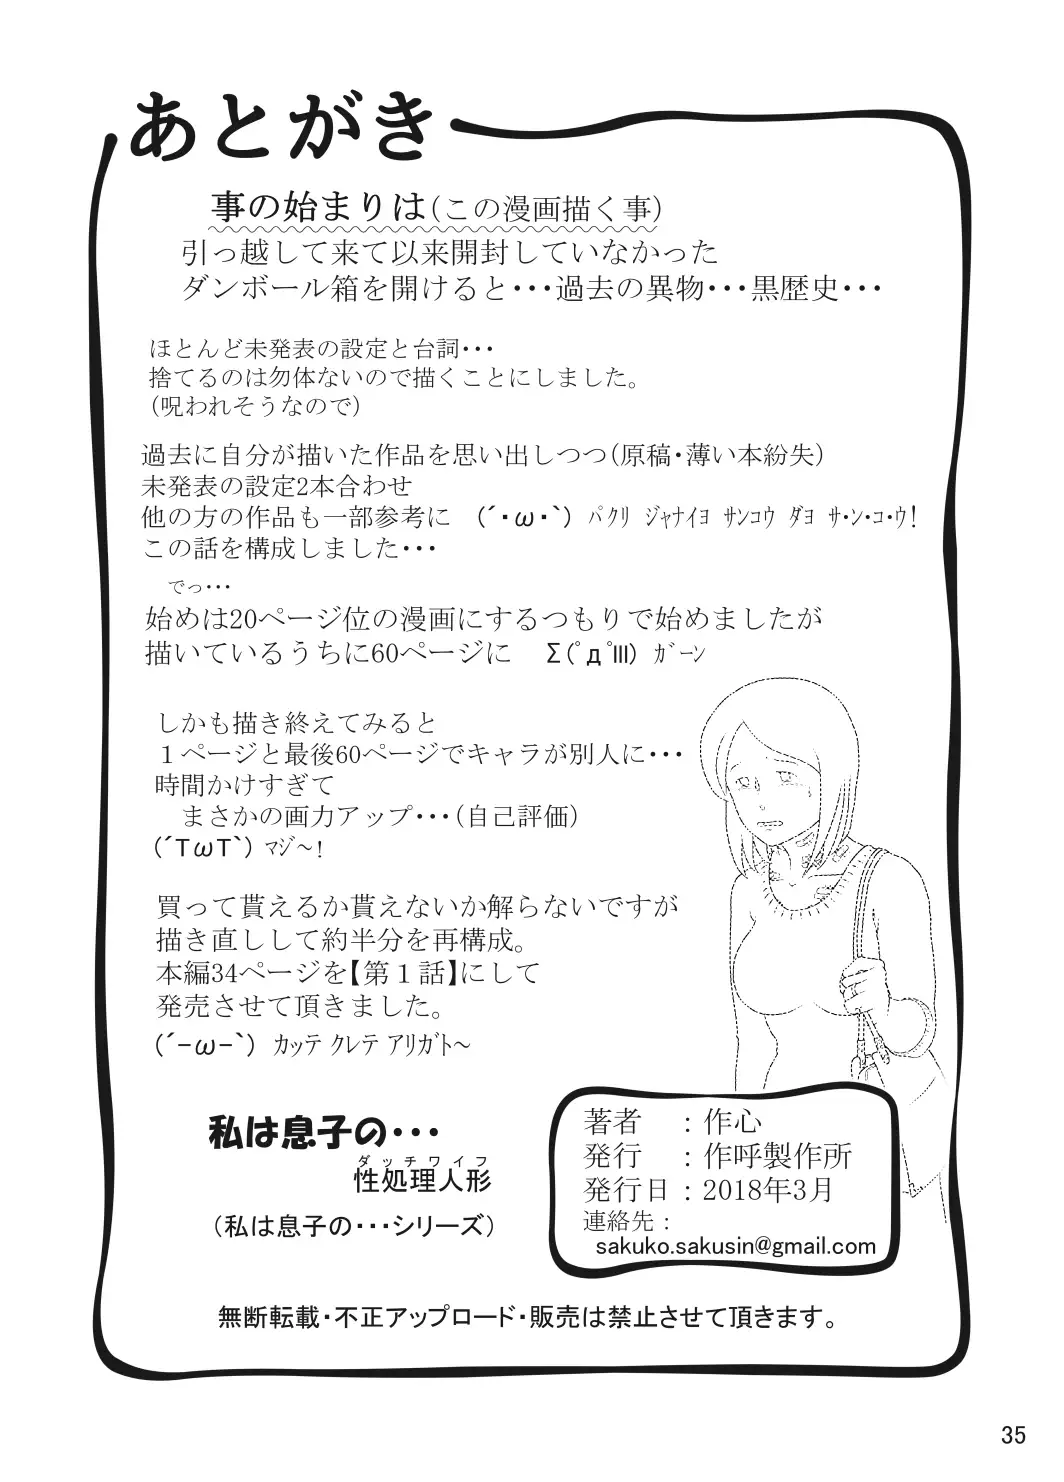 あとがき
事の始まりは(この漫画描く事)
引っ越して来て以来開封していなかった
ダンボール箱を開けると・・・過去の異物・・・黒歴史・・・
ほとんど未発表の設定と台詞・・・
捨てるのは勿体ないので描くことにしました。
(呪われそうなので)
過去に自分が描いた作品を思い出しつつ(原稿・薄い本紛失)
未発表の設定2本合わせ
他の方の作品も一部参考に (´・ω・`) ﾊﾟｸﾘ ｼﾞｬﾅｲﾖ ｻﾝｺｳ ﾀﾞﾖ ｻ・ﾝ・ｺ・ｳ!
この話を構成しました・・・
でっ・・・
始めは20ページ位の漫画にするつもりで始めましたが
描いているうちに60ページに Σ(ﾟдﾟlll) ｶﾞｰﾝ
しかも描き終えてみると
１ページと最後60ページでキャラが別人に・・・
時間かけすぎて
まさかの画力アップ・・・(自己評価)
(´TωT`) ﾏｼﾞ～!
買って貰えるか貰えないか解らないですが
描き直しして約半分を再構成。
本編34ページを【第１話】にして
発売させて頂きました。
(´-ω-`) ｶｯﾃ ｸﾚﾃ ｱﾘｶﾞﾄ～
私は息子の・・・
ダッチワイフ
性処理人形
(私は息子の・・・シリーズ)
著者 : 作心
発行 : 作呼製作所
発行日 : 2018年3月
連絡先 :
sakuko.sakusin@gmail.com
無断転載・不正アップロード・販売は禁止させて頂きます。
35